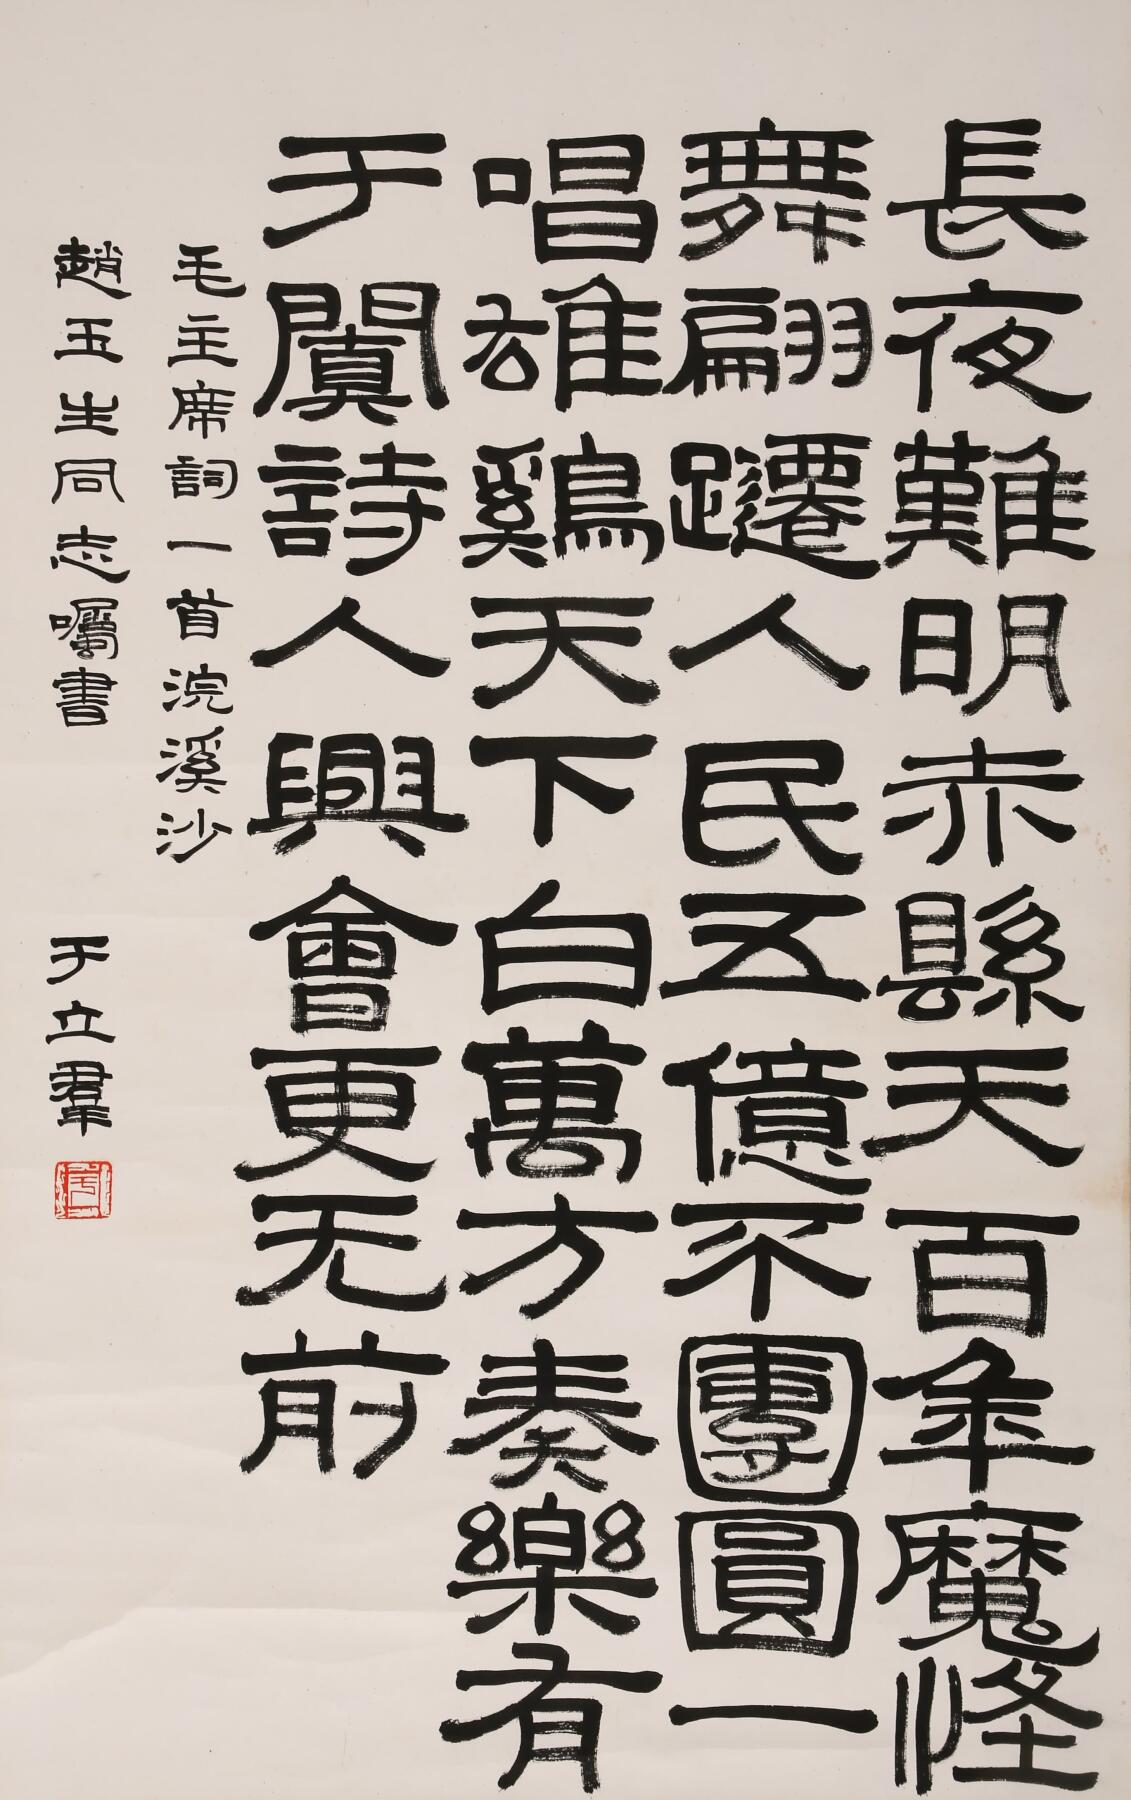 長夜難明赤縣天百年魔怪
舞翩躚人民五億不團圓一
唱雄鷄天下白萬方奏樂有
于闐詩人興會更无前
毛主席詞一首浣溪沙
趙玉生同志囑書
于立羣